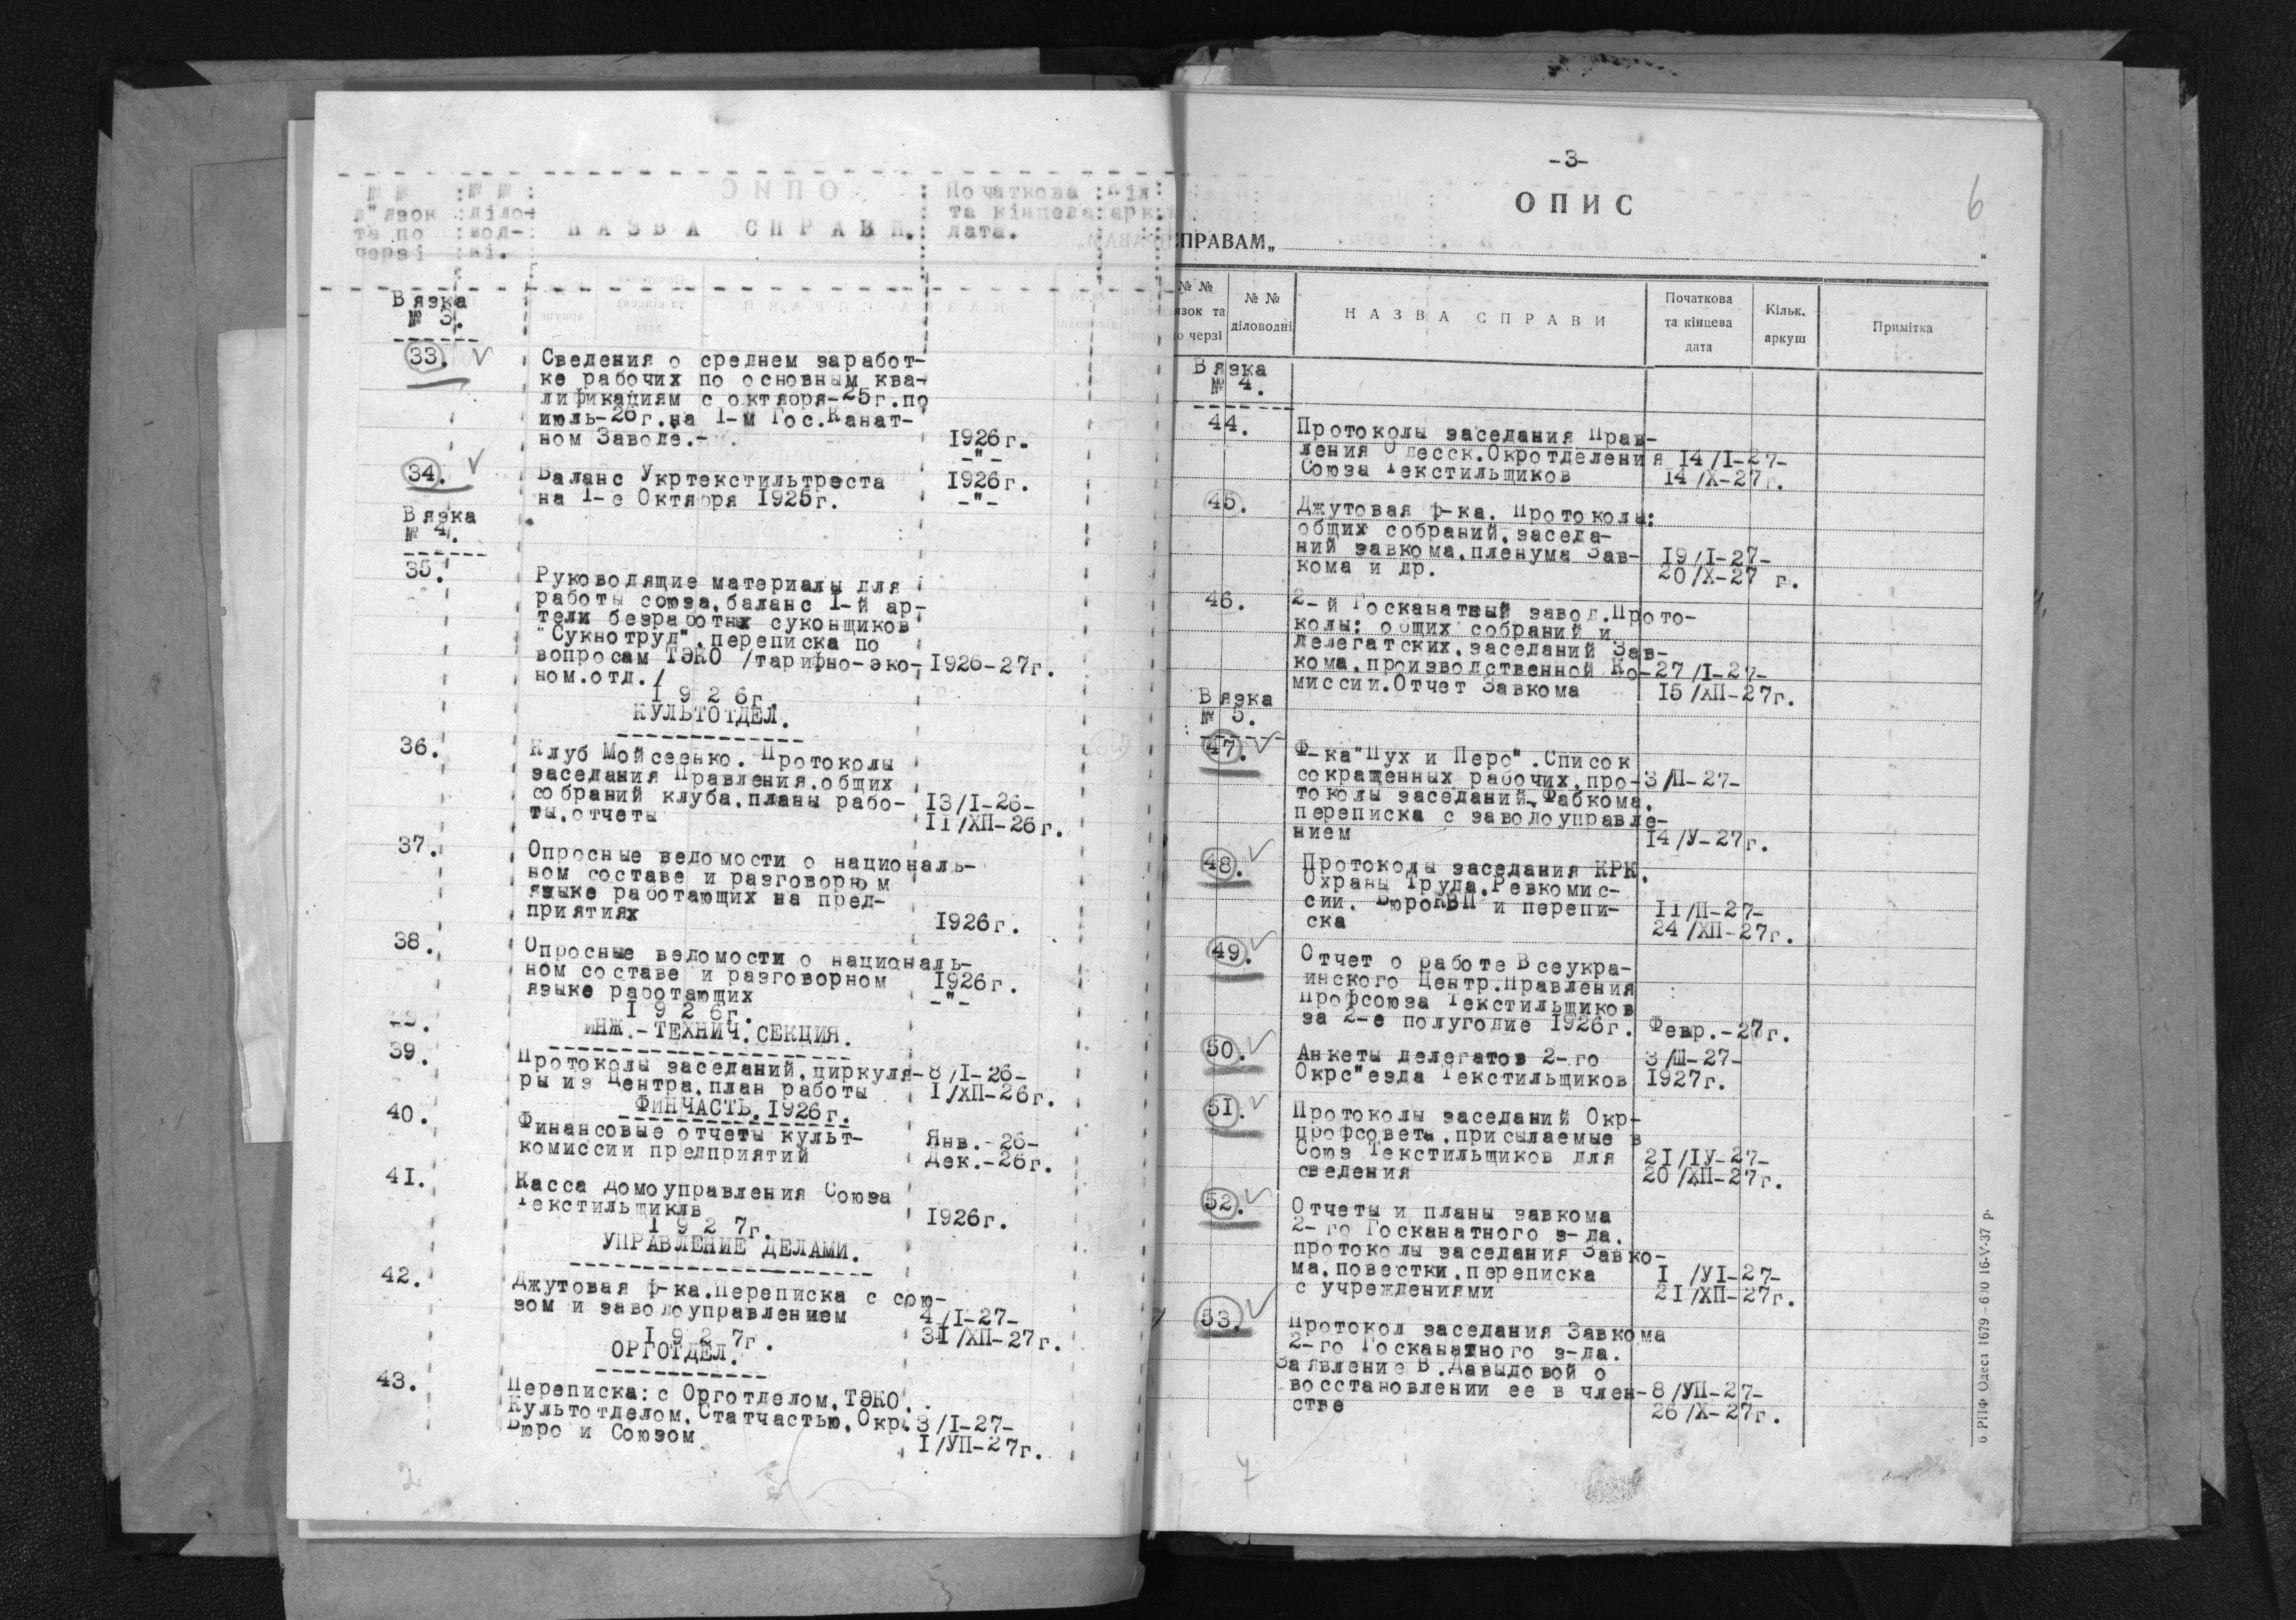 № №
в"язок
та по
черзі
№ №
діло-
вод-
ні.
ОПИС
НАЗВА СПРАВИ.
Початкова
та кінцева
дата.
Вязка
№ 3.
33.
Сведения о среднем заработ-
ке рабочих по основным ква-
лификациям с октября-25г.по
июль-26г.на 1-м Гос.Канат-
ном Заводе.-
1926г.
-"-
34.
Баланс Укртекстильтреста
на 1-е Октября 1925г.
1926г.
-"-
Вязка
№ 4.
35.
Руководящие материалы для
работы союза,баланс 1-й ар-
тели безработных суконщиков
"Сукнотруд",переписка по
вопросам ТЭКО /тарифно-эко-
ном.отд./
1926-27г.
1926г.
КУЛЬТОТДЕЛ.
36.
Клуб Мойсеенко. Протоколы
заседания Правления,общих
собраний клуба,планы рабо-
ты,отчеты
13/I-26-
11/ХП-26г.
37.
Опросные ведомости о националь-
ном составе и разговорюм
языке работающих на пред-
приятиях
1926г.
38.
Опросные ведомости о националь-
ном составе и разговорном
языке работающих
1926г.
-"-
1926г.
ИНЖ.-ТЕХНИЧ.СЕКЦИЯ.
39.
Протоколы заседаний,циркуля-
ры из Центра,план работы
8/I-26-
1/ХП-26г.
ФИНЧАСТЬ.1926г.
40.
Финансовые отчеты культ-
комиссии предприятий
Янв.-26-
Дек.-26г.
41.
Касса домоуправления Союза
Текстильщиклв
1926г.
1927г.
УПРАВЛЕНИЕ ДЕЛАМИ.
42.
Джутовая ф-ка.Переписка с сою-
зом и заводоуправлением
4/I-27-
31/ХП-27г.
1927г.
ОРГОТДЕЛ.
43.
Переписка:с Орготделом,ТЭКО,
Культотделом,Статчастью,Окр.
Бюро и Союзом
3/I-27-
1/УП-27г.
2
-3-
6
ОПИС
СПРАВАМ„
"
№ №
язок та
по черзі
№ №
діловодні
НАЗВА СПРАВИ
Початкова
та кінцева
дата
Кільк.
аркуш
Примітка
Вязка
№ 4.
44.
Протоколы заседания Прав-
ления Одесск.Окротделения
Союза Текстильщиков
14/I-27-
14/Х-27г.
45.
Джутовая ф-ка. Протоколы:
общих собраний,заседа-
ний завкома,пленума Зав-
кома и др.
19/I-27-
20/Х-27 г.
46.
2-й Госканатный завод.Прото-
колы: общих собраний и
делегатских,заседаний Зав-
кома,производственной Ко-
миссии.Отчет Завкома
27/I-27-
15/ХП-27г.
Вязка
№ 5.
47.
Ф-ка"Пух и Перо".Список
сокращенных рабочих,про-
токолы заседаний Фабкома,
переписка с заводоуправле-
нием
3/П-27-
14/У-27г.
48.
Протоколы заседания КРК,
Охраны Труда,Ревкомис-
сии, БюроКВП и перепи-
ска
11/П-27-
24/ХП-27г.
49.
Отчет о работе Всеукра-
инского Центр.Правления
Профсоюза Текстильщиков
за 2-е полугодие 1926г.
Февр.-27г.
50.
Анкеты делегатов 2-го
Окрс"езда Текстильщиков
3/Ш-27-
1927г.
51.
Протоколы заседаний Окр-
профсовета,присылаемые в
Союз Текстильщиков для
сведения
21/IУ-27-
20/ХП-27г.
52.
Отчеты и планы завкома
2-го Госканатного з-да,
протоколы заседания Завко-
ма,повестки,переписка
с учреждениями
1 /УI-27-
21/ХП-27г.
53.
Протокол заседания Завкома
2-го Госканатного з-да.
Заявление В.Давыдовой о
восстановлении ее в член-
стве
8/УП-27-
26/Х-27г.
7
6 РПФ Одеса 1679 - 600 16-V-37 р.